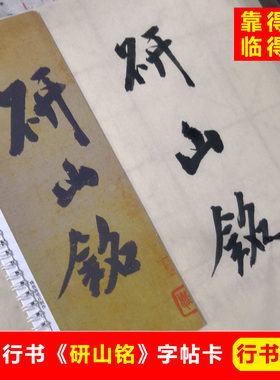 靠得
临得
研山铭
研山铭
行书《研山铭》字帖卡
行书